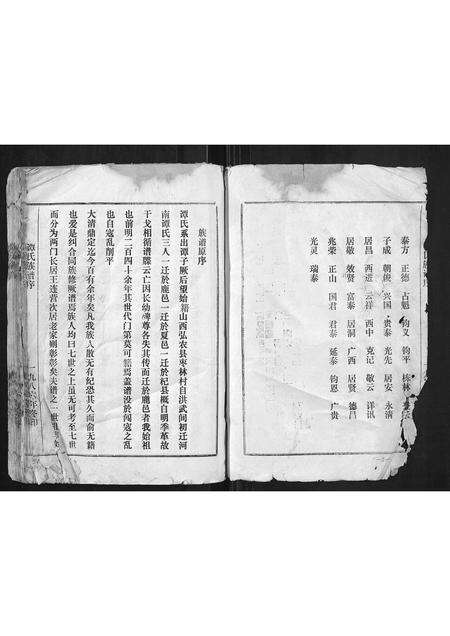 泰方 正德 古魁 钧义 钧平
子成 朝俊 兴国 贵泰 光先 居安 永清
居昌 西进 云祥 西中 克记 敬云 详讯
居敬 效贤 富泰 居洞 广西 居贤 德昌
兆荣 正山 国君 君泰 延泰 钧恩 广贵
光灵 瑞泰
族谱原序
谭氏系出谭子厥后望始籍山西弘农县枣林村自洪武间初迁河
南谭氏三人一迁於鹿邑一迁於夏邑一迁於杞县概自明季革故
干戈相循谱牒云亡因长幼尊卑各失其传而迁於鹿邑者我始祖
也前明二百四十余年其世代门第莫可稽焉盖谱没於闯寇之乱
也自寇乱削平
大清鼎定迄今百有余年矣凡我族人散无有纪恐其久而俞无籍
也爰是纠合同族修厥谱焉族人均曰七世之上虽无可考至七世
而分为两门长居王连营次居老家则彰彰矣夫谱之一
谭氏族谱序